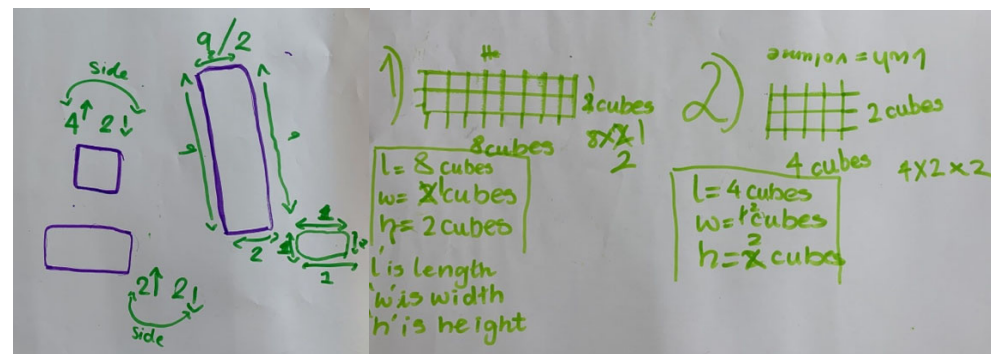 9/2
side
4↑ 2↓
2
1
1
2↑ 2↓
side
1)
8 cubes
l = 8 cubes
w = 1 cubes
h = 2 cubes
'l' is length
'w' is width
'h' is height
2)
lwh = volume
2 cubes
4 cubes
4x2x2
l = 4 cubes
w = 2 cubes
h = 2 cubes